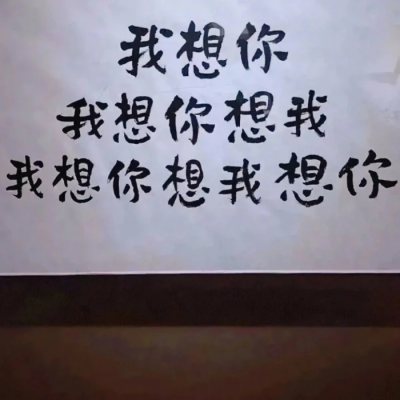 我想你
我想你想我
我想你想我想你